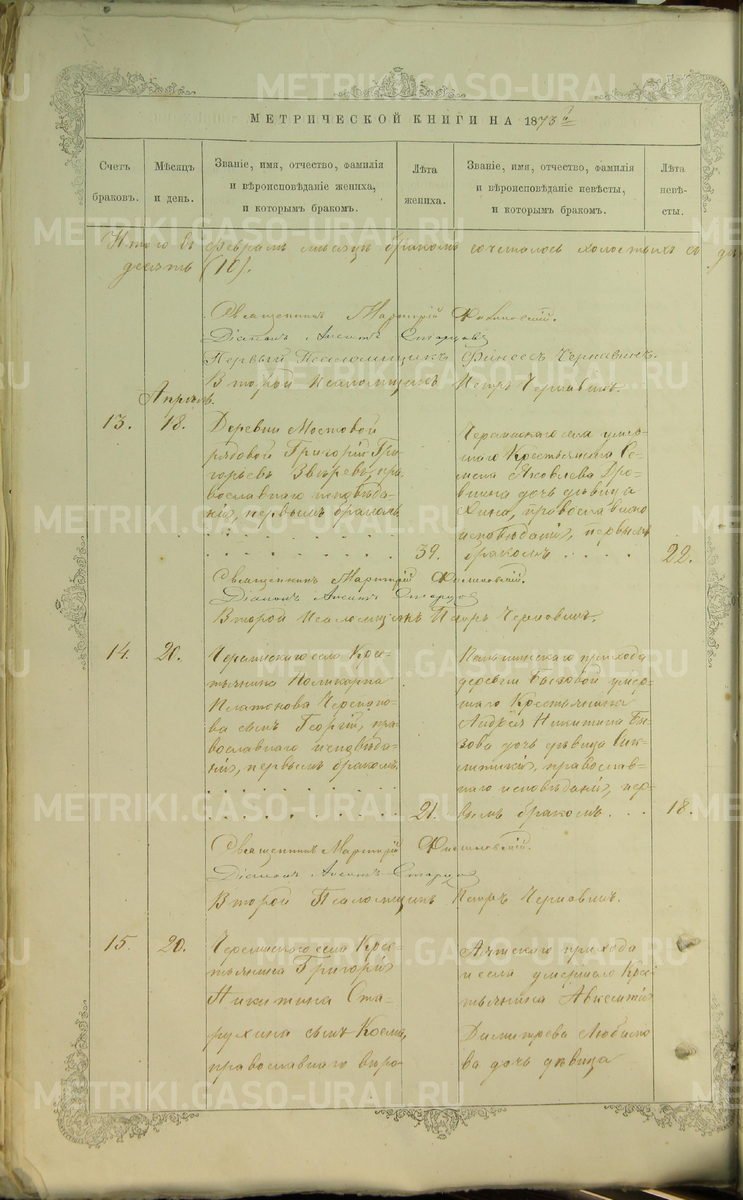 METRIKI.GASO-URAL.RU
МЕТРИЧЕСКОЙ КНИГИ НА 1873й
Счетъ браковъ.
Мѣсяцъ и день.
Званіе, имя, отчество, фамилія
и вѣроисповѣданіе жениха,
и которымъ бракомъ.
Лѣта жениха.
Званіе, имя, отчество, фамилія
и вѣроисповѣданіе невѣсты,
и которымъ бракомъ.
Лѣта невѣ-
сты.
Итого въ Февралѣ мѣсяцѣ бракомъ сочеталось холостыхъ съ дѣ
десять (10).
Священникъ Мартирій
Діаконъ Старцовъ
Первый Псаломщикъ
Второй Псаломщикъ Петръ Чернавинъ.
Апрѣль.
13.
18.
Деревни Мостовой
рядовой Григорій Гри-
горьевъ Звѣревъ, пра-
вославнаго исповѣда-
нія, первымъ бракомъ
39.
села умер-
шаго Крестьянина Се-
мена Яковлева
дочь дѣвица
православнаго
исповѣданія, первымъ
бракомъ . . . .
22.
Священникъ Мартирій
Діаконъ Старцовъ
Второй Псаломщикъ Петръ Чернавинъ.
14.
20.
села Кре-
стьянина Поликарпа
Платонова Черепано-
ва сынъ Георгій, пра-
вославнаго исповѣда-
нія, первымъ бракомъ
21.
прихода
деревни умер-
шаго Крестьянина
Андрея Никитина
дочь дѣвица Син-
клитикія, православ-
наго исповѣданія, пер-
вымъ бракомъ . . .
18.
Священникъ Мартирій
Діаконъ Старцовъ
Второй Псаломщикъ Петръ Чернавинъ.
15.
20.
села Крес-
тьянина Григорія
Никитина Ста-
рухина сынъ Косма,
православнаго вѣро-
Аятскаго прихода
и села умершаго Кре-
стьянина Авксентія
Димитрева
дочь дѣвица